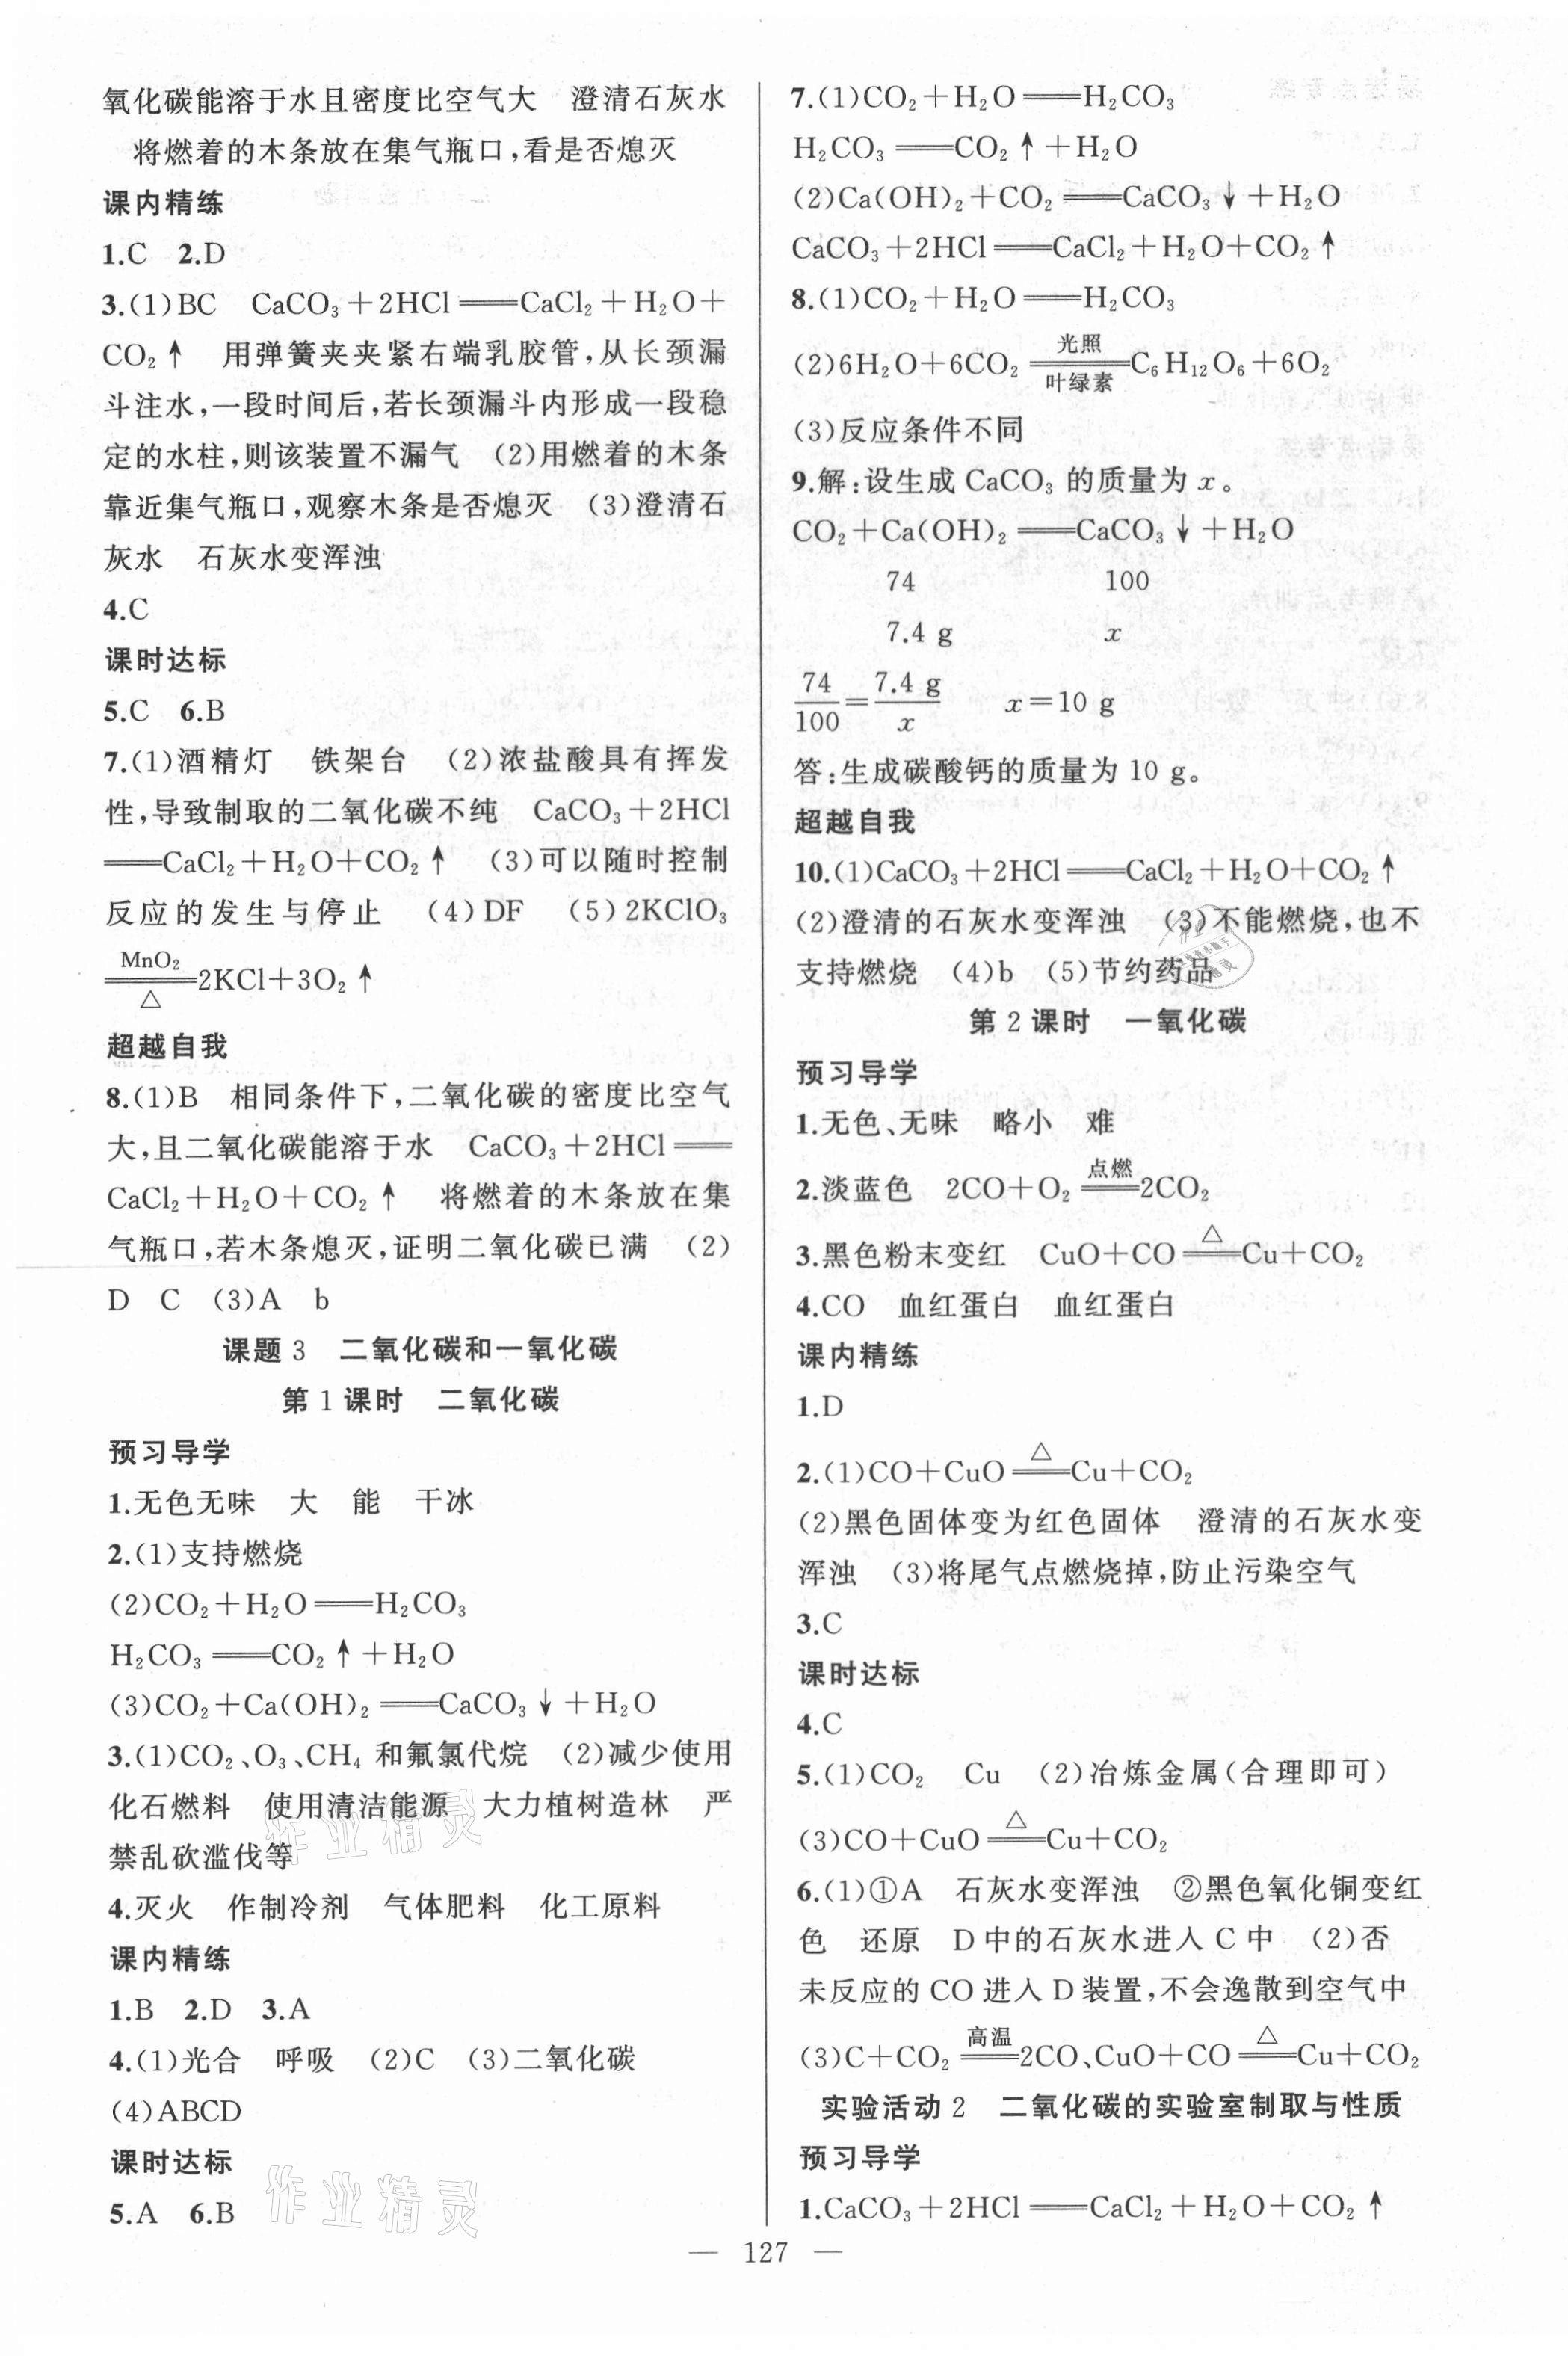 氧化碳能溶于水且密度比空气大　澄清石灰水
将燃着的木条放在集气瓶口,看是否熄灭
课内精练
1.C　2.D
3.(1)BC　CaCO₃+2HCl══CaCl₂+H₂O+
CO₂↑　用弹簧夹夹紧右端乳胶管,从长颈漏
斗注水,一段时间后,若长颈漏斗内形成一段稳
定的水柱,则该装置不漏气　(2)用燃着的木条
靠近集气瓶口,观察木条是否熄灭　(3)澄清石
灰水　石灰水变浑浊
4.C
课时达标
5.C　6.B
7.(1)酒精灯　铁架台　(2)浓盐酸具有挥发
性,导致制取的二氧化碳不纯　CaCO₃+2HCl
══CaCl₂+H₂O+CO₂↑　(3)可以随时控制
反应的发生与停止　(4)DF　(5)2KClO₃
MnO₂
══2KCl+3O₂↑
△
超越自我
8.(1)B　相同条件下,二氧化碳的密度比空气
大,且二氧化碳能溶于水　CaCO₃+2HCl══
CaCl₂+H₂O+CO₂↑　将燃着的木条放在集
气瓶口,若木条熄灭,证明二氧化碳已满　(2)
D　C　(3)A　b
课题3　二氧化碳和一氧化碳
第1课时　二氧化碳
预习导学
1.无色无味　大　能　干冰
2.(1)支持燃烧
(2)CO₂+H₂O══H₂CO₃
H₂CO₃══CO₂↑+H₂O
(3)CO₂+Ca(OH)₂══CaCO₃↓+H₂O
3.(1)CO₂、O₃、CH₄和氟氯代烷　(2)减少使用
化石燃料　使用清洁能源　大力植树造林　严
禁乱砍滥伐等
4.灭火　作制冷剂　气体肥料　化工原料
课内精练
1.B　2.D　3.A
4.(1)光合　呼吸　(2)C　(3)二氧化碳
(4)ABCD
课时达标
5.A　6.B
作业精灵
作业精灵
7.(1)CO₂+H₂O══H₂CO₃
H₂CO₃══CO₂↑+H₂O
(2)Ca(OH)₂+CO₂══CaCO₃↓+H₂O
CaCO₃+2HCl══CaCl₂+H₂O+CO₂↑
8.(1)CO₂+H₂O══H₂CO₃
光照
(2)6H₂O+6CO₂══C₆H₁₂O₆+6O₂
叶绿素
(3)反应条件不同
9.解:设生成CaCO₃的质量为x。
CO₂+Ca(OH)₂══CaCO₃↓+H₂O
74　100
7.4 g　x
74/100=7.4 g/x　x=10 g
答:生成碳酸钙的质量为10 g。
超越自我
10.(1)CaCO₃+2HCl══CaCl₂+H₂O+CO₂↑
(2)澄清的石灰水变浑浊　(3)不能燃烧,也不
支持燃烧　(4)b　(5)节约药品
第2课时　一氧化碳
预习导学
1.无色、无味　略小　难
点燃
2.淡蓝色　2CO+O₂══2CO₂
△
3.黑色粉末变红　CuO+CO══Cu+CO₂
4.CO　血红蛋白　血红蛋白
课内精练
1.D
△
2.(1)CO+CuO══Cu+CO₂
(2)黑色固体变为红色固体　澄清的石灰水变
浑浊　(3)将尾气点燃烧掉,防止污染空气
3.C
课时达标
4.C
5.(1)CO₂　Cu　(2)冶炼金属(合理即可)
△
(3)CO+CuO══Cu+CO₂
6.(1)①A　石灰水变浑浊　②黑色氧化铜变红
色　还原　D中的石灰水进入C中　(2)否
未反应的CO进入D装置,不会逸散到空气中
高温　△
(3)C+CO₂══2CO、CuO+CO══Cu+CO₂
实验活动2　二氧化碳的实验室制取与性质
预习导学
1.CaCO₃+2HCl══CaCl₂+H₂O+CO₂↑
— 127 —